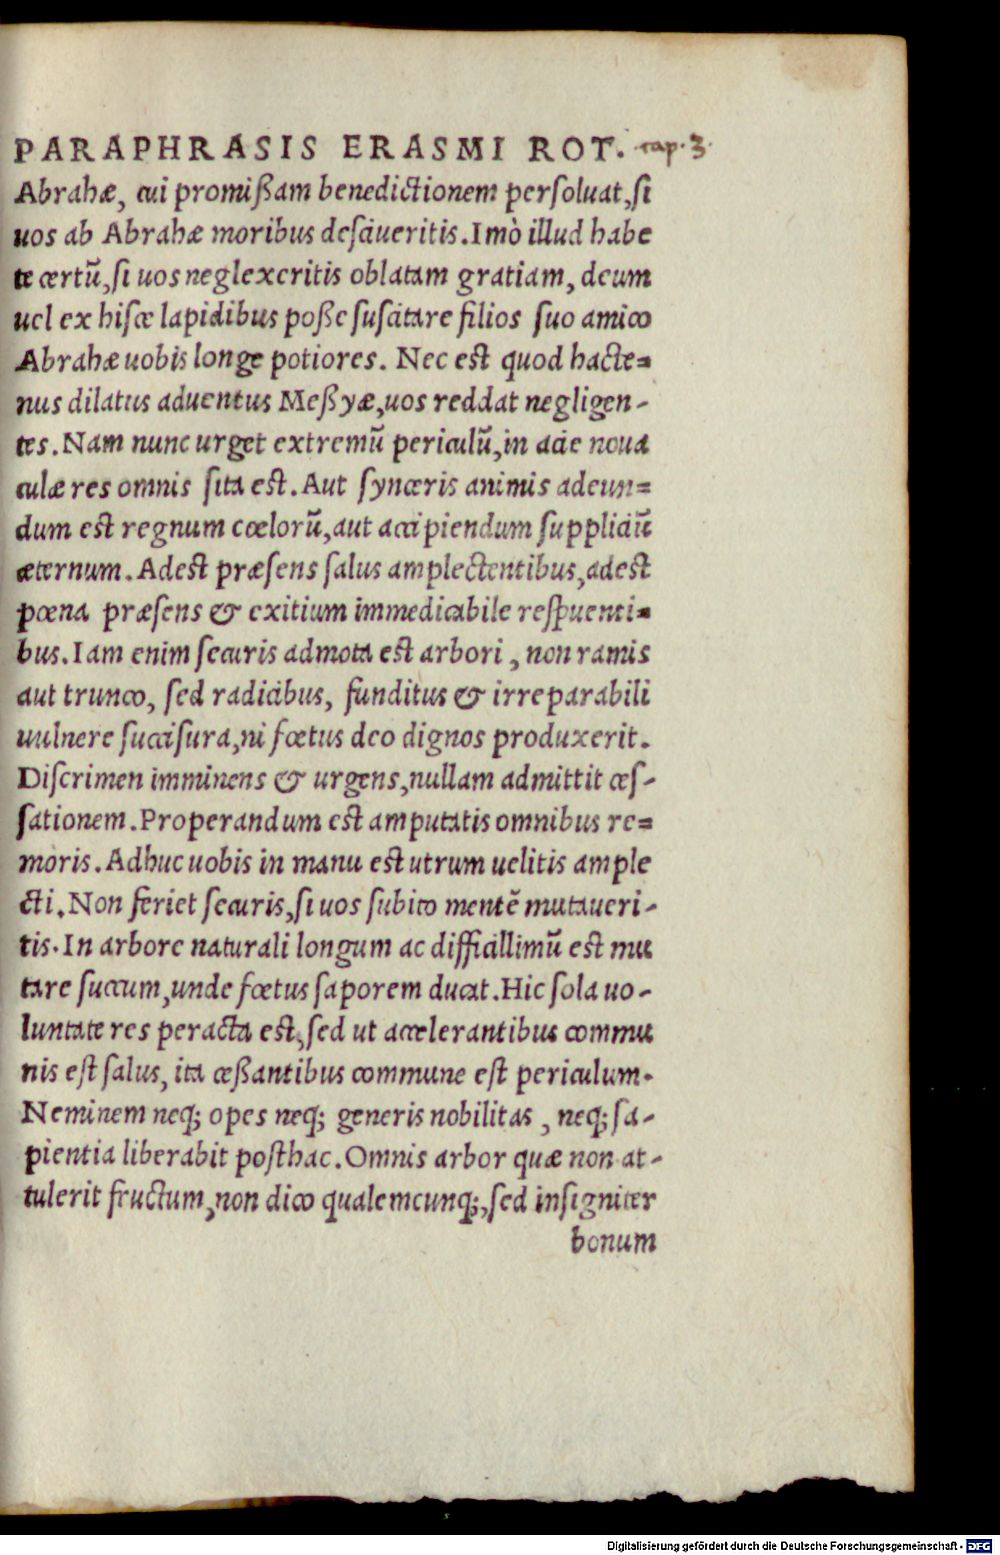 PARAPHRASIS ERASMI ROT. cap. 3.
Abrahæ, cui promißam benedictionem persoluat, si
uos ab Abrahæ moribus desciueritis. Imò illud habe
te certũ, si uos neglexeritis oblatam gratiam, deum
uel ex hisce lapidibus poße suscitare filios suo amico
Abrahæ uobis longe potiores. Nec est quod hacte=
nus dilatus aduentus Meßyæ, uos reddat negligen-
tes. Nam nunc urget extremũ periculũ, in acie noua
culæ res omnis sita est. Aut synceris animis adeun=
dum est regnum cœlorũ, aut accipiendum suppliciũ
æternum. Adest præsens salus amplectentibus, adest
pœna præsens & exitium immedicabile respuenti=
bus. Iam enim securis admota est arbori, non ramis
aut trunco, sed radicibus, funditus & irreparabili
uulnere succisura, ni fœtus deo dignos produxerit.
Discrimen imminens & urgens, nullam admittit ces-
sationem. Properandum est amputatis omnibus re=
moris. Adhuc uobis in manu est utrum uelitis ample
cti. Non feriet securis, si uos subito mentẽ mutaueri-
tis. In arbore naturali longum ac difficillimũ est mu
tare succum, unde fœtus saporem ducat. Hic sola uo-
luntate res peracta est, sed ut accelerantibus commu
nis est salus, ita ceßantibus commune est periculum.
Neminem neq; opes neq; generis nobilitas, neq; sa-
pientia liberabit posthac. Omnis arbor quæ non at-
tulerit fructum, non dico qualemcunq;, sed insigniter
bonum
Digitalisierung gefördert durch die Deutsche Forschungsgemeinschaft - DFG